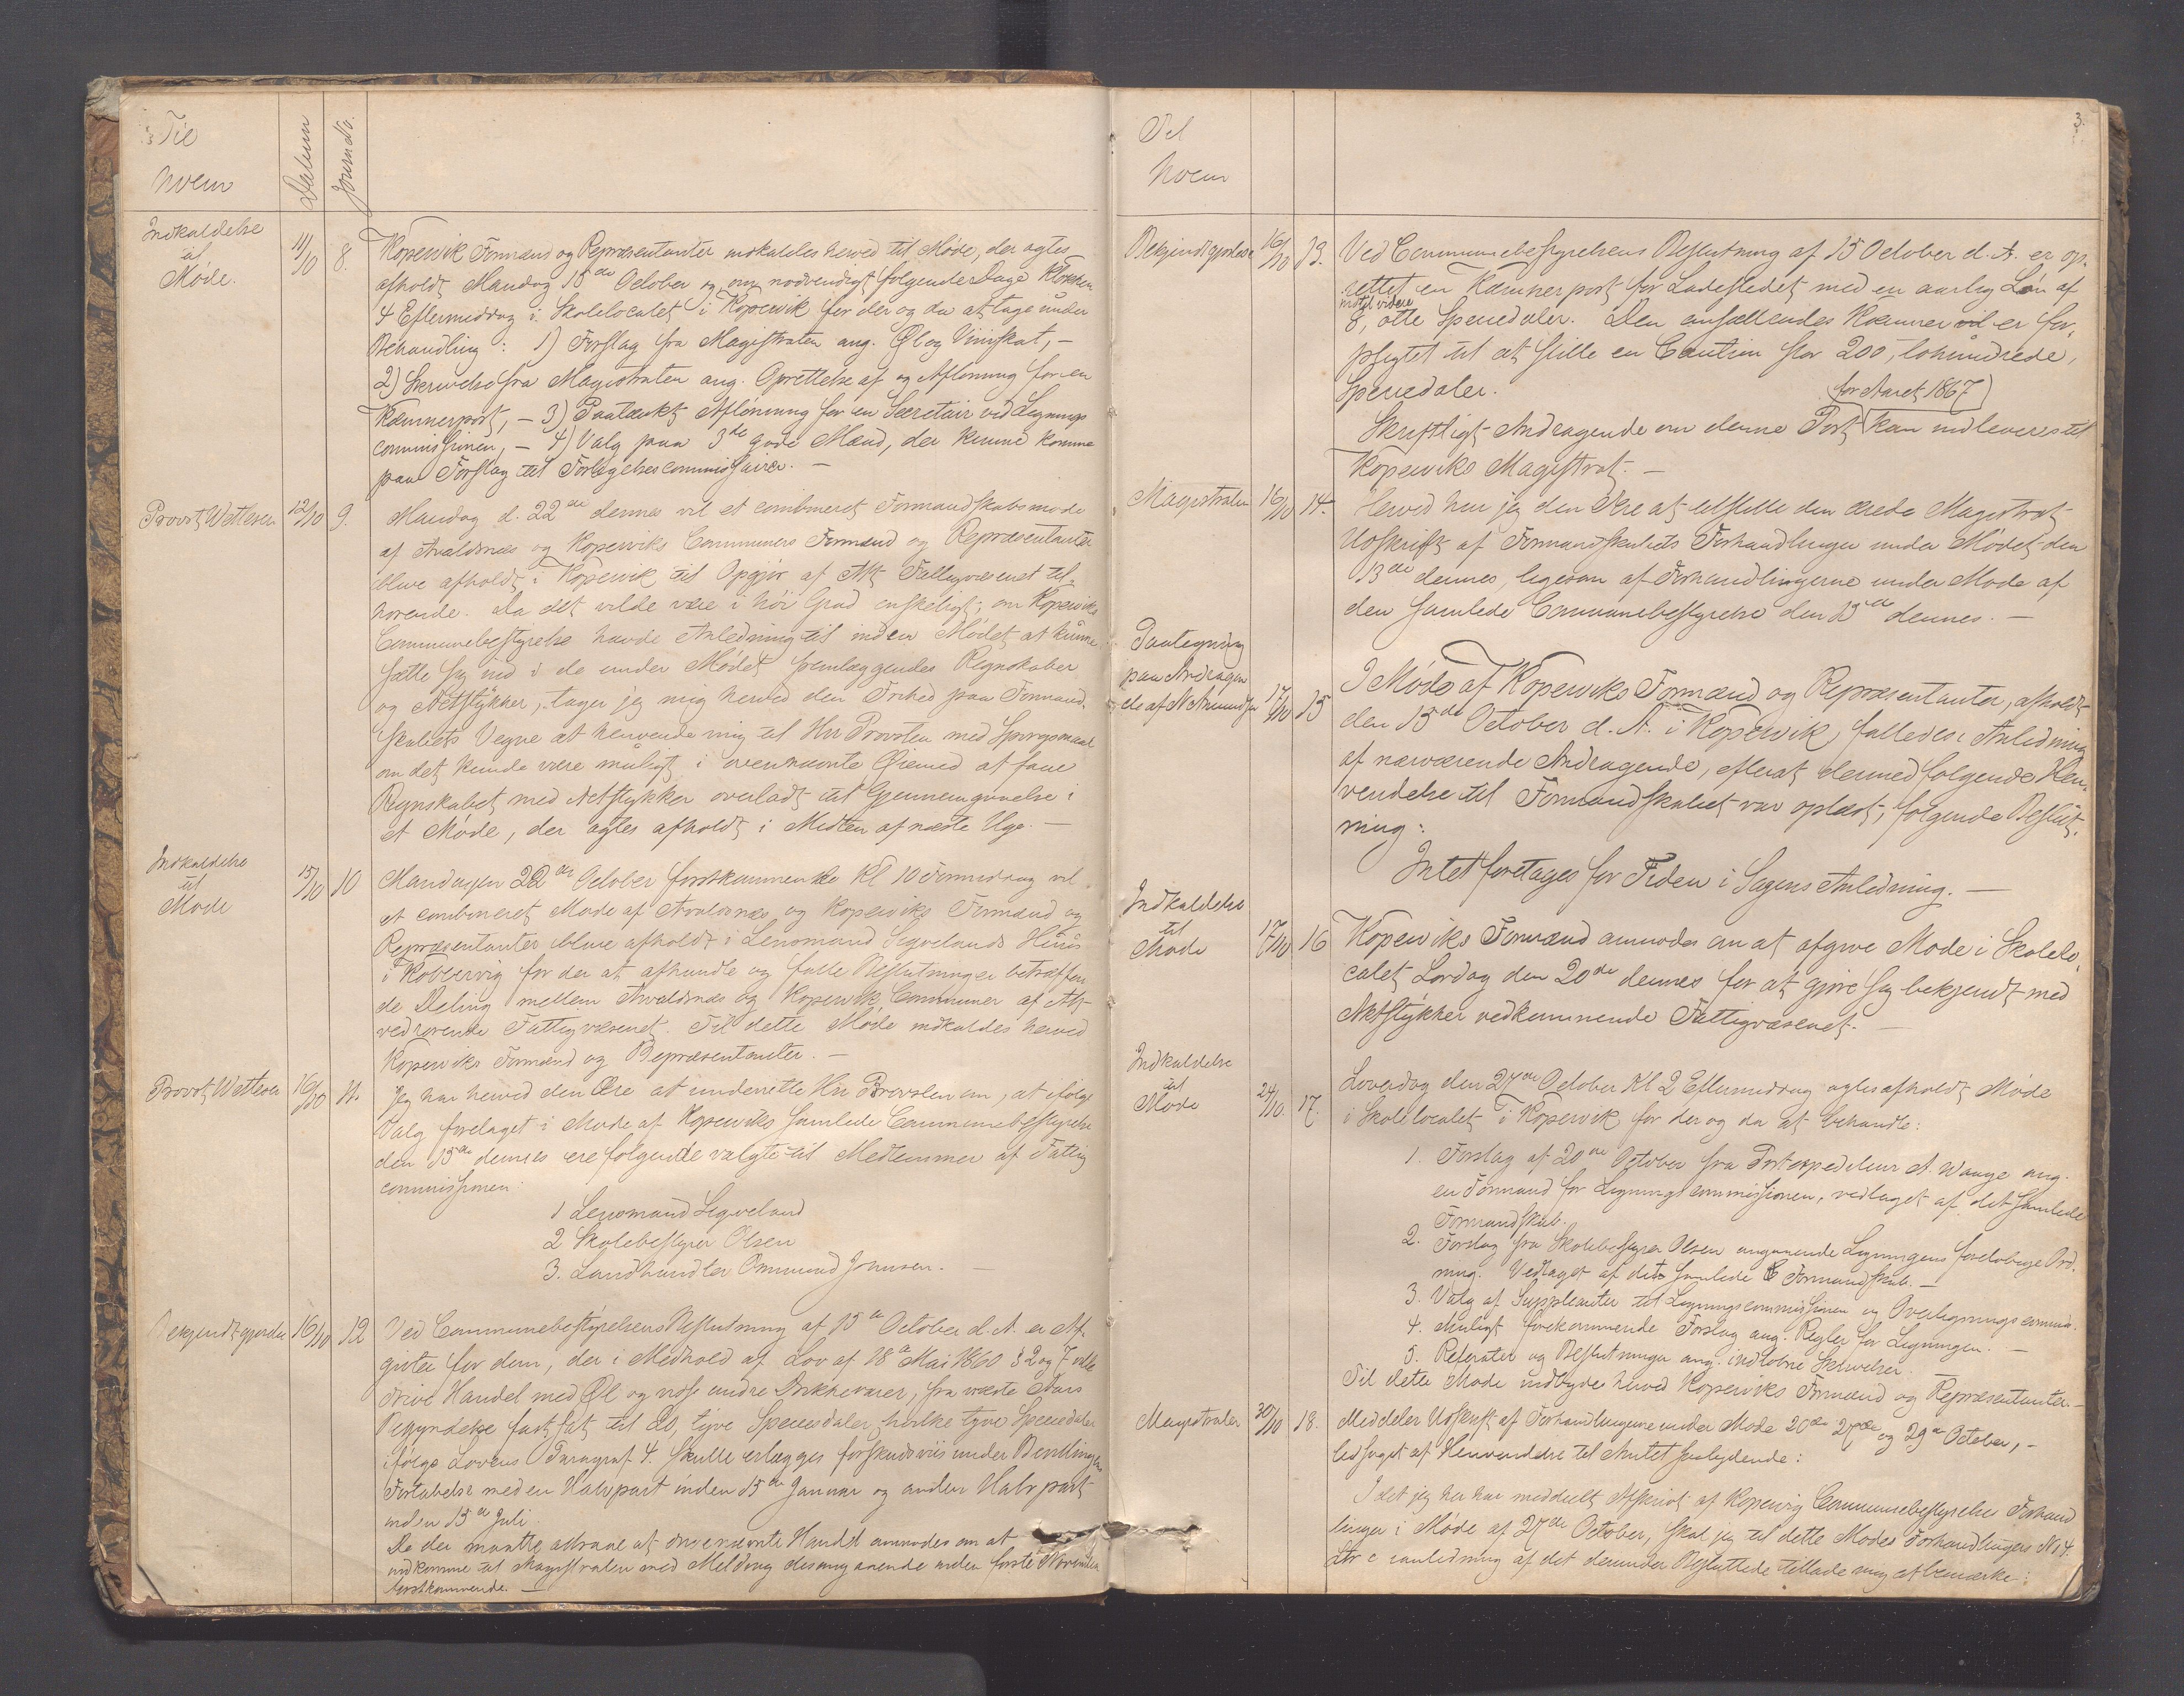 Til
Hvem
Datum
Journ.No.
Indkaldelse
til
Møde.
11/10
8.
Kopervik Formænd og Repræsentanter indkaldes herved til Møde, der agtes
afholdt Mandag 15de October og om nødvendigt følgende Dage Klokken
4 Eftermiddag i Skolelocalet i Kopervik for der og da at tage under
Behandling: 1) Forslag fra Magistraten ang. Øl og Viinskat, –
2) Skrivelse fra Magistraten ang. Oprettelse af og Aflønning for en
Kæmnerpost, – 3) Paatænkt Aflønning for en Secretair ved Lignings
commissionen, – 4) Valg paa 3de gode Mænd, der kunne komme
paa Forslag til Forligelsescommissairer. –
Provst Wettesen
12/10
9.
Mandag d. 22de dennes vil et combineret Formandskabsmøde
af Avaldsnæs og Koperviks Communers Formænd og Repræsentanter
blive afholdt i Kopervik til Opgjør af Alt Fattigvæsenet til-
hørende. Da det vilde være i høi Grad ønskeligt, om Koperviks
Communebestyrelse havde Anledning til inden Mødet at kunne
sætte sig ind i de under Mødet fremlæggendes Regnskaber
og Actstykker, tager jeg mig herved den Frihed paa Formand-
skabets Vegne at henvende mig til Hrr Provsten med Spørgsmaal
om det kunde være muligt i ovennævnte Øiemed at faae
Regnskabet med Actstykker overladt til Gjennemgaaelse i
et Møde, der agtes afholdt i Midten af næste Uge. –
Indkaldelse
til
Møde
15/10
10
Mandagen 22de October førstkommende Kl 10 Formiddag vil
et combineret Møde af Avaldsnæs og Koperviks Formænd og
Repræsentanter blive afholdt i Lensmand Sigvelands Huus
i Kobbervig for der at afhandle og fatte Beslutninger betræffen
de Deling mellem Avaldsnæs og Kopervik Communer af Alt
vedrørende Fattigvæsenet. Til dette Møde indkaldes herved
Koperviks Formænd og Repræsentanter. –
Provst Wettesen
16/10
11.
Jeg har herved den Ære at underrette Hrr Provsten om, at ifølge
Valg foretaget i Møde af Koperviks samlede Communebestyrelse
den 15de dennes ere følgende valgte til Medlemmer af Fattig
commissionen:
1 Lensmand Sigveland
2 Skolebestyrer Olsen
3. Landhandler Ommund Jonnsen. –
Bekjendtgjørelse
16/10
12
Ved Communebestyrelsens Beslutning af 15de October d. A. er Af-
giften for dem, der i Medhold af Lov af 18de Mai 1860 § 2 og 7 ville
drive Handel med Øl og visse andre Drikkevarer, fra næste Aars
Begyndelse fastsat til 20, tyve Speciesdaler, hvilke tyve Speciedaler
ifølge Lovens Paragraf 4. skulle erlægges forskudsviis under Bevillingens
Fortabelse med en Halvpart inden 15de Januar og anden Halvpart
inden 15de Juli.
De der maatte attraae at drive nævnte Handel anmodes om at
indkomme til Magistraten med Melding desangaaende inden første November
førstkommende. –
3.
Til
Hvem
Bekjendtgjørelse
16/10
13.
Ved Communebestyrelsens Beslutning af 15 October d. A. er op-
rettet en Kæmnerpost for Ladestedet med en aarlig Løn af
indtil videre
8, otte Speciedaler. Den ansættendes Kæmner er for-
pligtet til at stille en Caution stor 200, tohundrede,
Speciedaler.
for Aaret 1867
Skriftligt Andragende om denne Post kan indleveres til
Koperviks Magistrat. –
Magistraten
16/10
14.
Herved har jeg den Ære at tilstille den ærede Magistrat
Udskrift af Formandskabets Forhandlinger under Mødet den
13de dennes, ligesom af Forhandlingerne under Møde af
den samlede Communebestyrelse den 15de dennes. –
Paategning
paa Andragen
de af N Amundsen
17/10
15
I Møde af Koperviks Formænd og Repræsentanter, afholdt
den 15de October d. A. i Kopervik, fattedes i Anledning
af nærværende Andragende, efterat dermed følgende Hen-
vendelse til Formandskabet var oplæst, følgende Beslut-
ning:
Intet foretages for Tiden i Sagens Anledning. –
Indkaldelse
til
Møde
17/10
16
Koperviks Formænd anmodes om at afgive Møde i Skolelo
calet Lørdag den 20de dennes for at gjøre sig bekjendt med
Actstykker vedkommende Fattigvæsenet. –
Indkaldelse
til
Møde
24/10.
17.
Løverdag den 27de October Kl 2 Eftermiddag agtes afholdt Møde
i Skolelocalet i Kopervik for der og da at behandle:
1. Forslag af 20de October fra Postexpediteur A. Waage ang.
en Formand for Ligningscommissionen, vedtaget af det samlede
Formandskab.
2. Forslag fra Skolebestyrer Olsen angaaende Ligningens foreløbige Ord-
ning. Vedtaget af det samlede Formandskab. –
3. Valg af Suppleanter til Ligningscommissionen og Overligningscommis.
4. Muligt forekommende Forslag ang. Regler for Ligningen. –
5. Referater og Beslutninger ang. indløbne Skrivelser.
Til dette Møde indbydes herved Koperviks Formænd og Repræsentanter. –
Magistraten
30/10
18.
Meddeler Udskrift af Forhandlingerne under Møde 20de 27de og 29de October, –
ledsaget af Henvendelse til Amtet saalydende:
Idet jeg her har meddeelt Afskrivt af Kopervig Communebestyrelses Forhand
linger i Møde af 27de October, skal jeg til dette Mødes Forhandlingers No 4.
Ltr c i anledning af det derunder Besluttede tillade mig at bemærke: